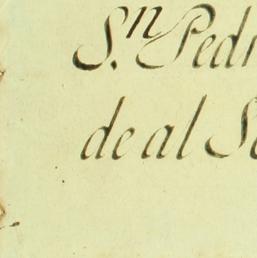 S.n Pedr
de al S